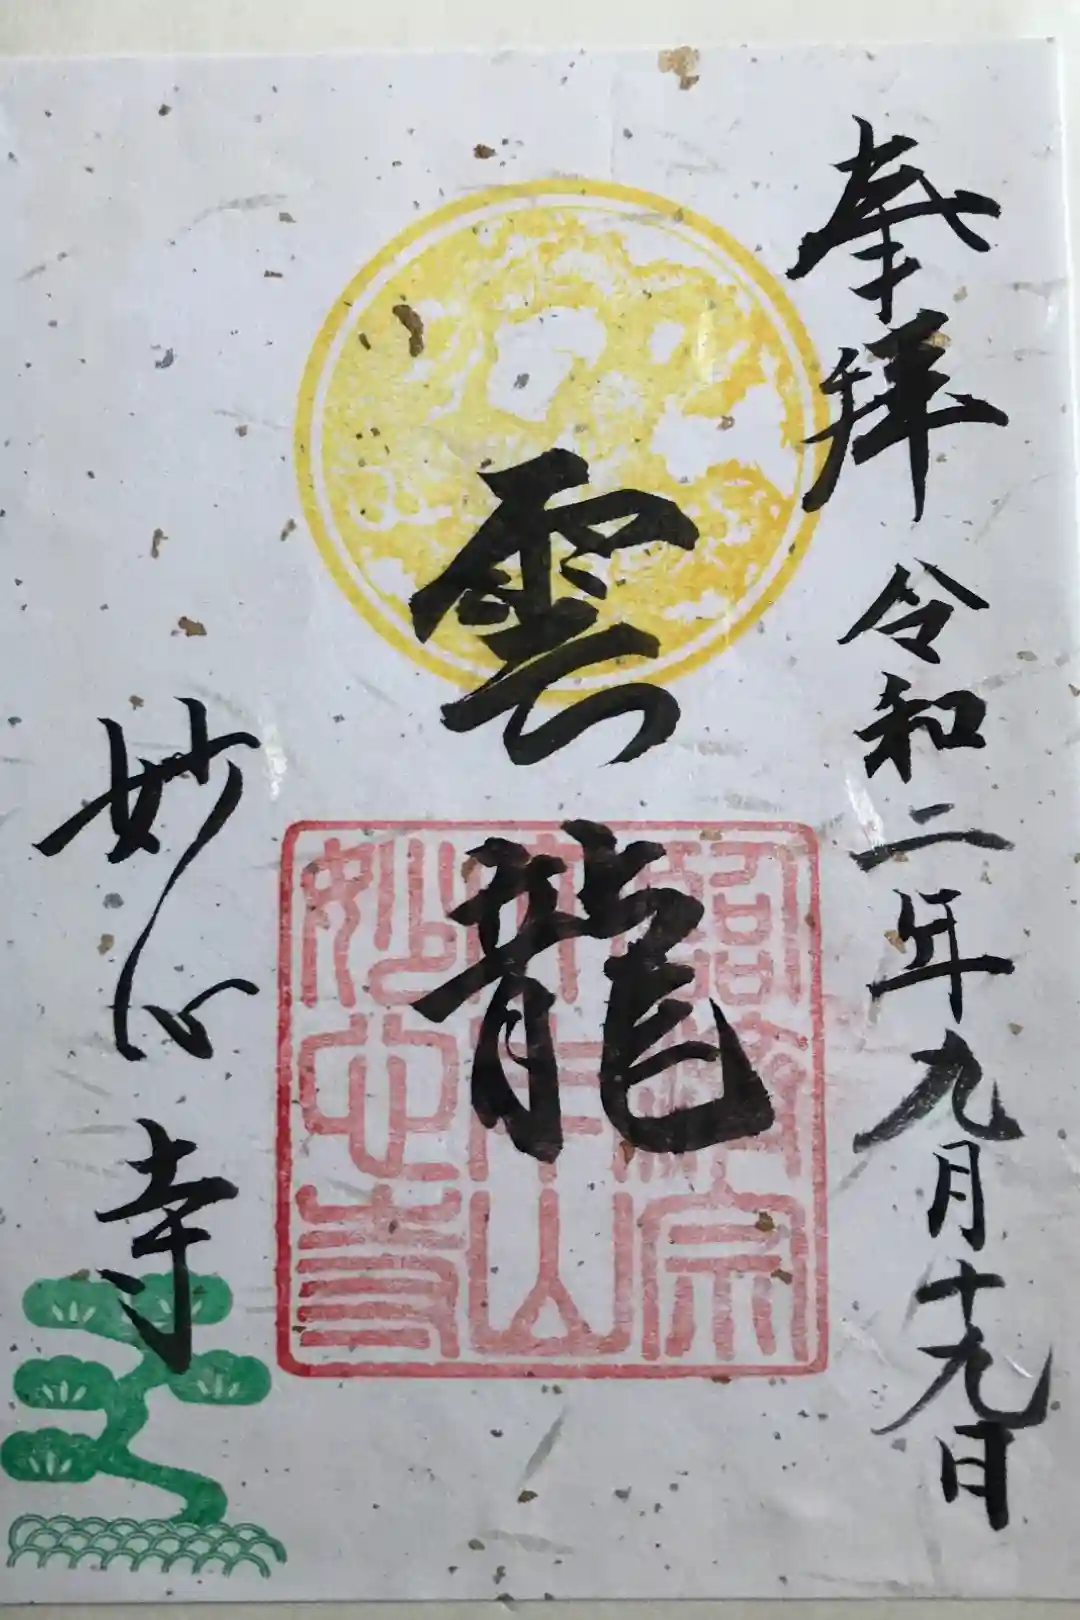 奉拝
令和二年九月十九日
雲龍
臨済宗
正法山
妙心寺
妙心寺